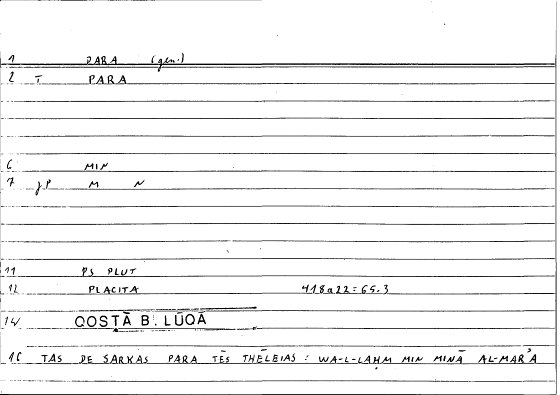 1 PARA (gen.)
2 T PARA
6 MIN
7 jP M N
11 PS PLUT
12 PLACITA 418a22=65.3
14 QOSṬĀ B. LŪQĀ
16 TAS DE SARKAS PARA TĒS THĒLEIAS : WA-L-LAḤM MIN MINĀ AL-MARʾA